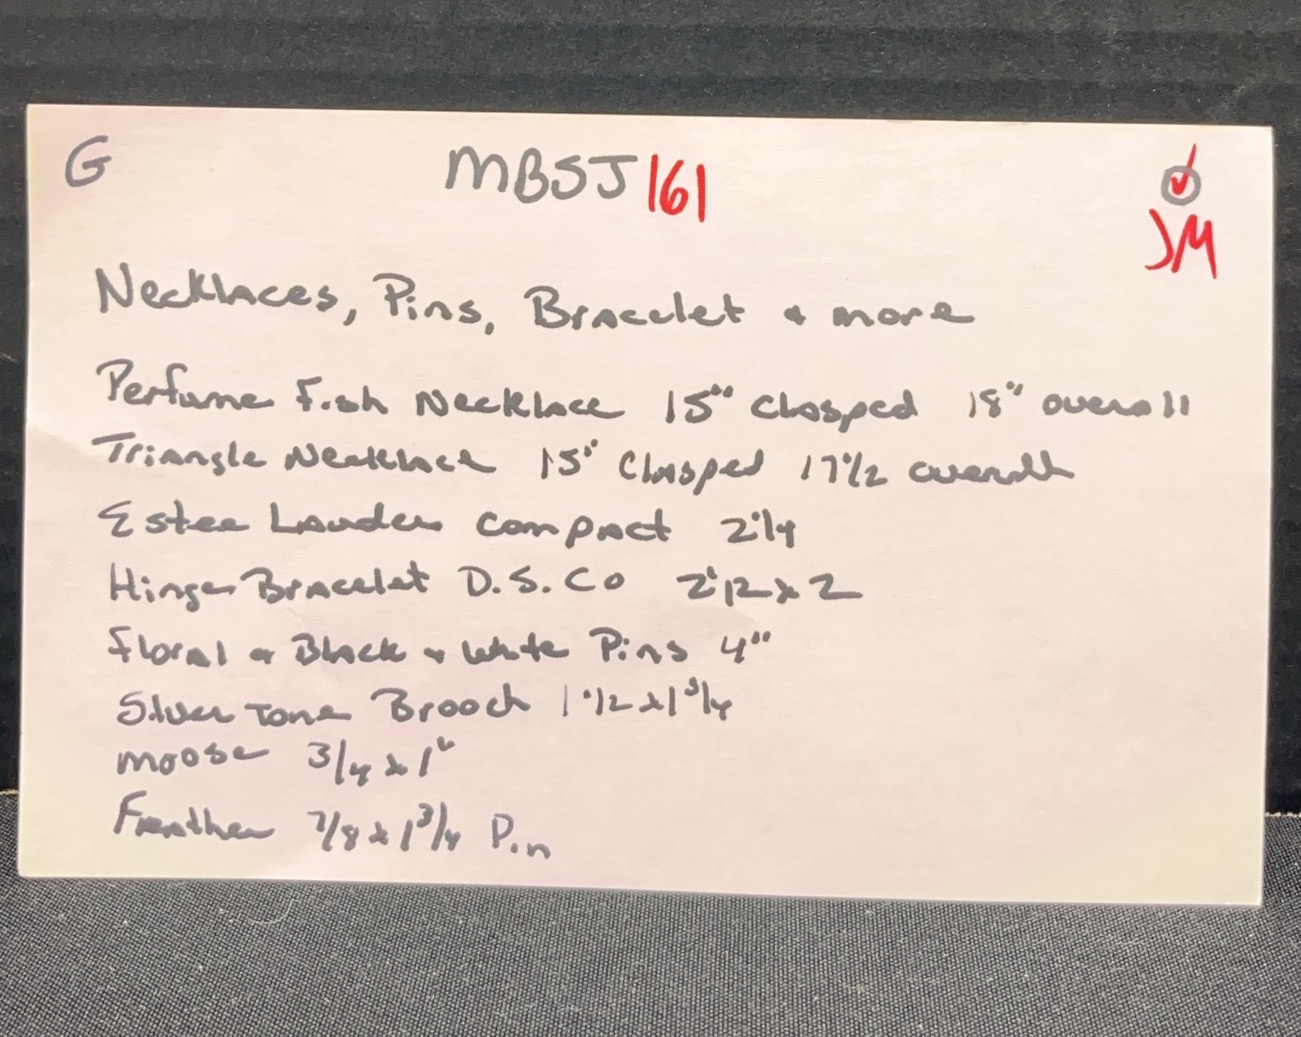 G MBSJ161
JM
Necklaces, Pins, Bracelet & more
Perfume Fish Necklace 15" Clasped 18" overall
Triangle Necklace 15" Clasped 17 1/2 overall
Estee Lauder Compact 2 1/4
Hinge Bracelet D.S.Co 2 1/2 x 2
Floral & Black & White Pins 4"
Silver Tone Brooch 1 1/2 x 1 3/4
Moose 3/4 x 1"
Feather 7/8 x 1 3/4 Pin